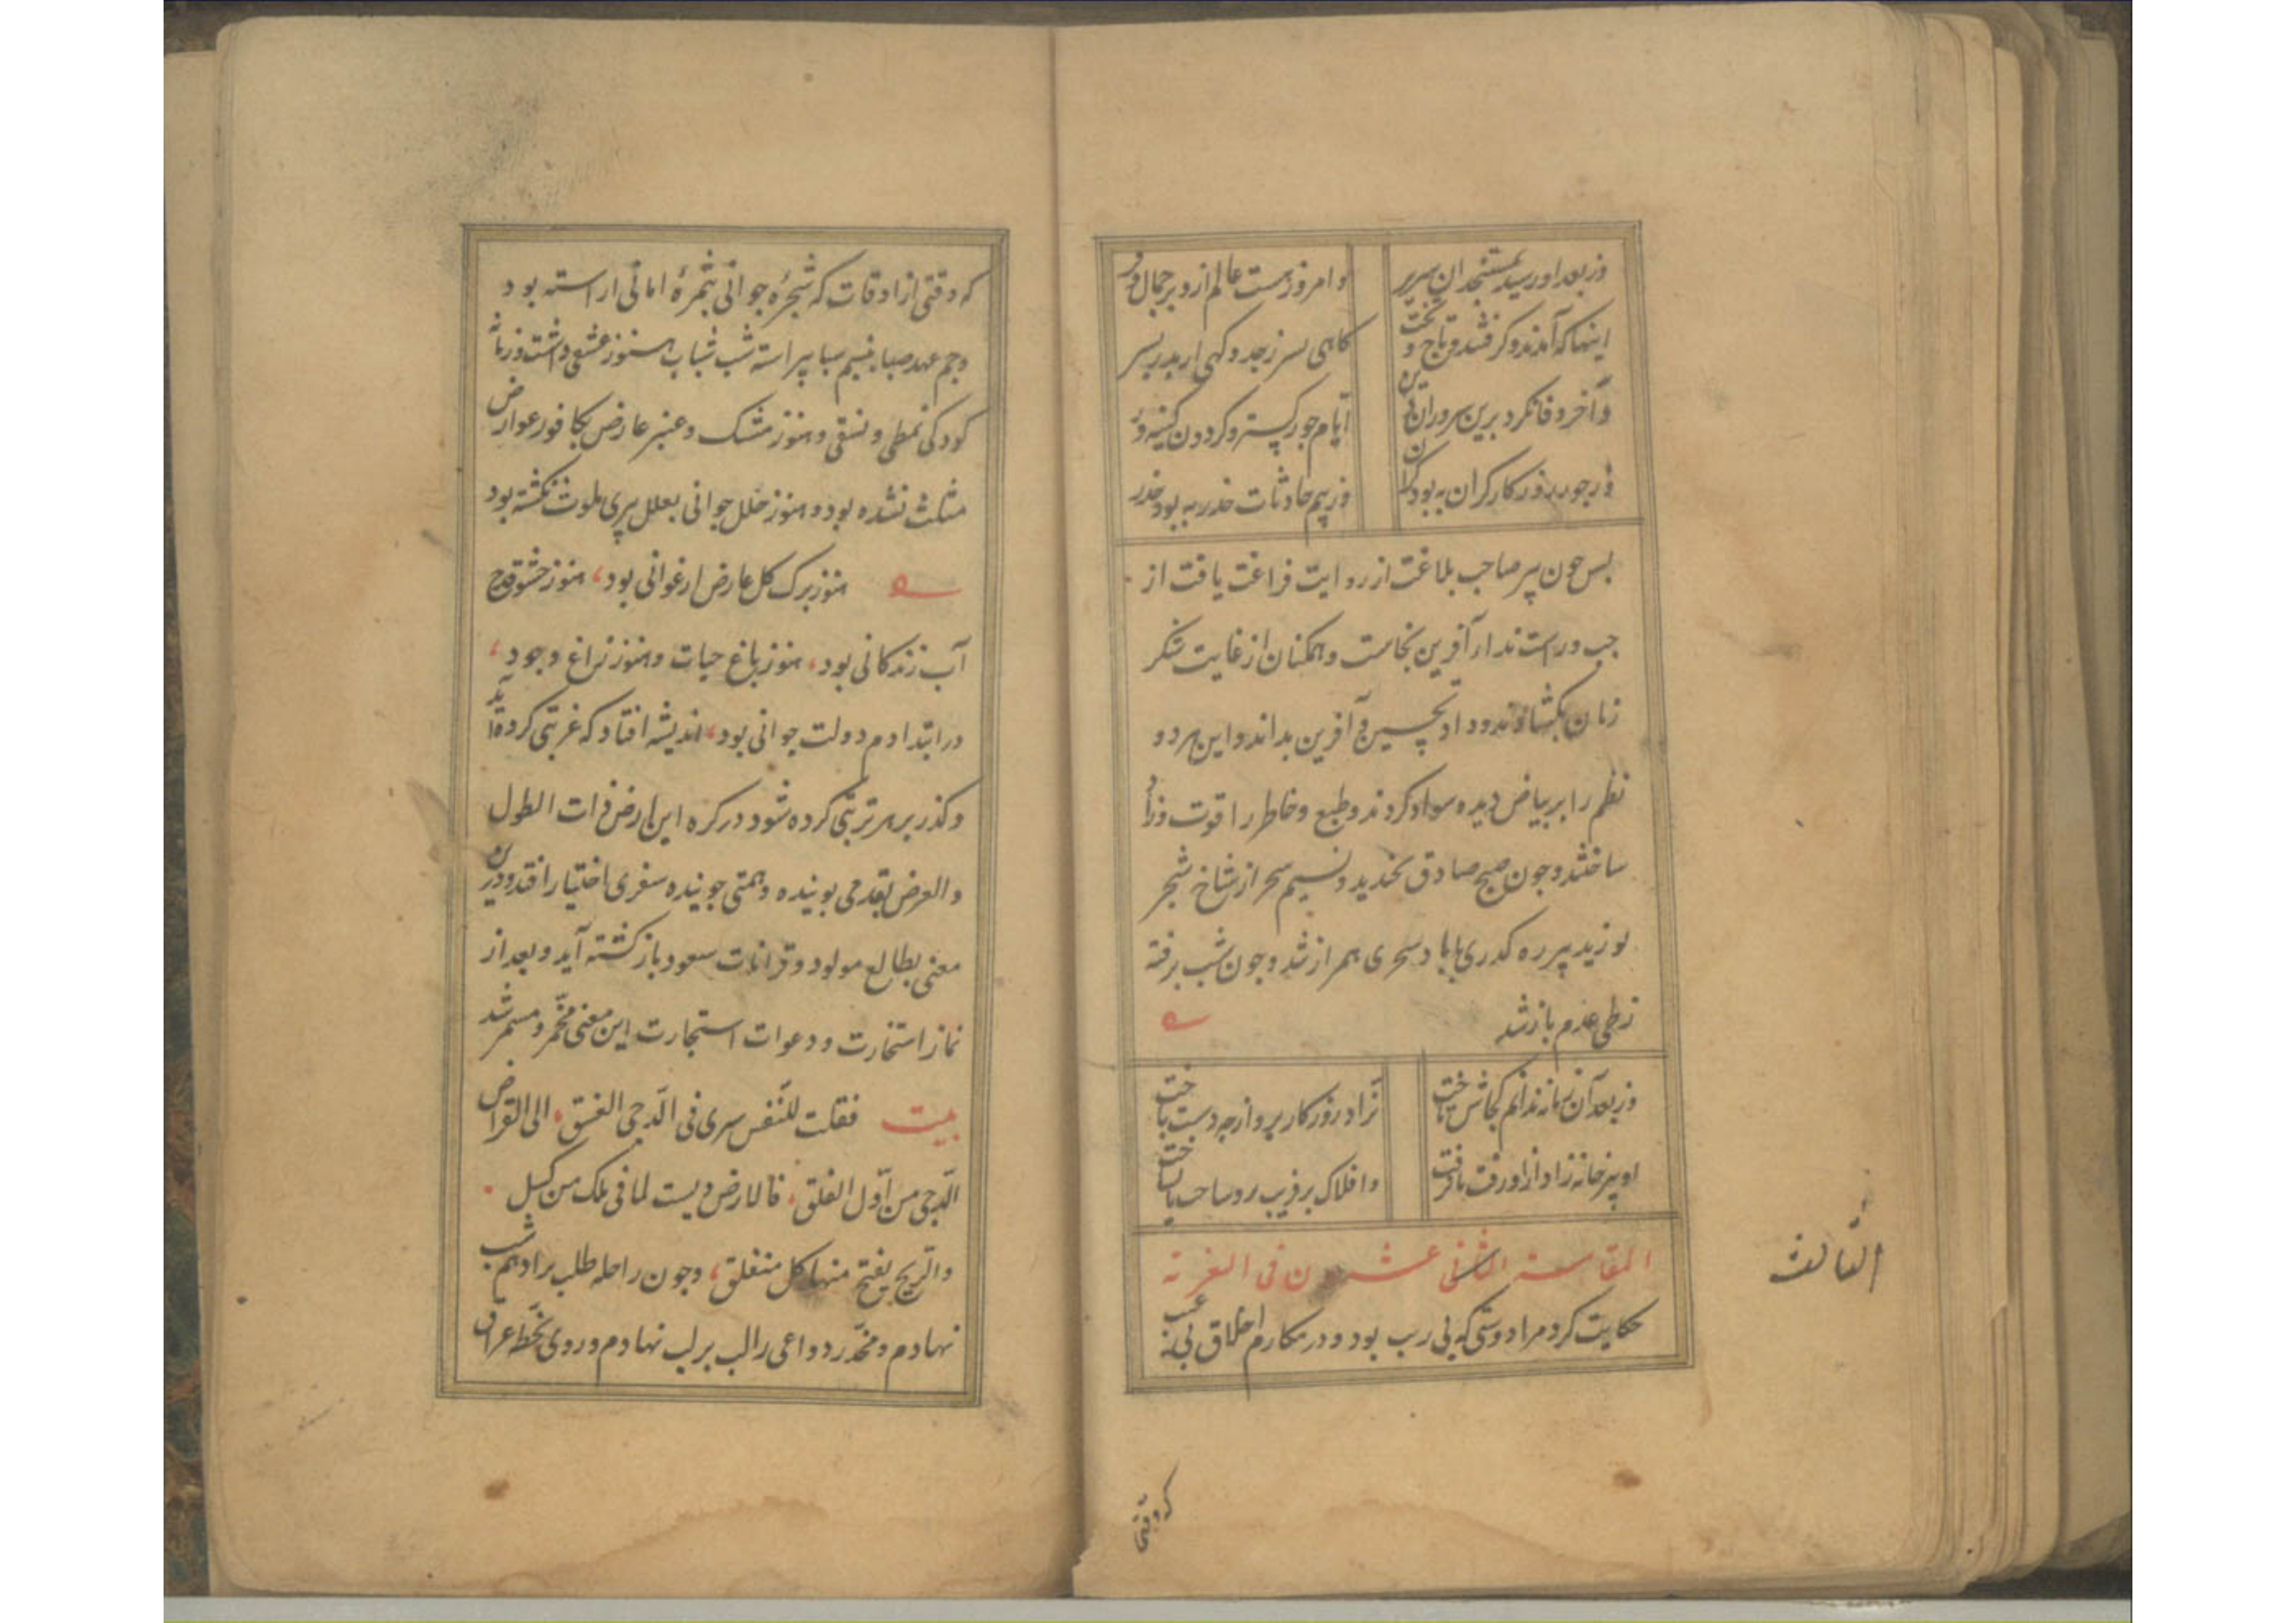 وز بعد او رسید بمستنجد ان سریر
و امروز هست عالم ازو بر جمال و فر
اینها که آمدند و گرفتند تاج و تخت
کاهی پسر ز جد و کهی از پدر پسر
و آخر وفا نکرد برین سروران
ایام جور کستر و کردون کینه ور
وز جور روزکار کران به بود کران
وز بیم حادثات حذر به بود حذر
بس جون پیر صاحب بلاغت از روایت فراغت یافت از
جب و راست ندای آفرین بخاست و همکنان از غایت شکر
زبان بکشاوندود او تحسین و آفرین بداند و این هر دو
نظم را بر بیاض دیده سواد کردند و طبع و خاطر را قوت و زاد
ساختند و جون صبح صادق بخندید و نسیم سحر از شاخ شجر
بوزید پیر ره کدری با باد سحری همراز شد و جون شب رفته
زطی عدم باز شد
وز بعد آن زمانه ندانم کجاش تاخت
نراد روزکار برو از چه دست باخت
او بنزخانه زاد ازو رفت یا کریخت
و افلاک بر فریب برو ساخت یا نساخت
المقامة الثانی عشرون فی الغربة
الثالث
حکایت کرد مرا دوستی که بی ریب بود و در مکارم اخلاق بی عیب
که وقتی
که وقتی از اوقات که شجره جوانی بثمرهٔ امانی اراسته بود
و جم عهد صبا بنسیم صبا پیراسته شب شباب هنوز غسقی داشت و زمانه
کودکی نمطی و نسقی و هنوز مشک و عنبر عارض بکافور عوارض
مثلث نشده بود و هنوز حلل جوانی بعلل پیری ملوث نکشته بود
هنوز برک کل عارض ارغوانی بود، هنوز حشو قدح
آب زندکانی بود، هنوز باغ حیات و هنوز زاغ وجود،
در ابتداء دم دولت جوانی بود، اندیشه افتاد که غربتی کرده آید
و کذر بر هر تربتی کرده شود در کره این ارض ذات الطول
و العرض بقدمی بوینده و همتی جوینده سفری اختیار افتد و درین
معنی بطالع مولود و قرانات سعود باز کشته آید و بعد از
نماز استخارت و دعوات استجارت این معنی مخمر و مسمر شد
بیت فقلت للنفس سری فی الدجی الغسق، الی القراض
الدجی من اول الفلق، فالارض لیست لما فی ملک من کسل
و الریح یفتح منها کل منغلق، و جون راحله طلب برادهم شب
نهادم و مخدر دواعی را لب بر لب نهادم و روی بخطه عراق